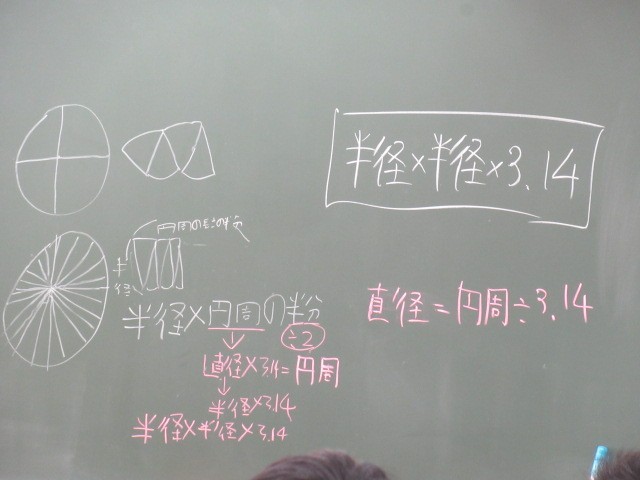 半径×半径×3.14
半
径
半径×円周の半分
÷2
直径×3.14=円周
半径×3.14
半径×半径×3.14
直径=円周÷3.14